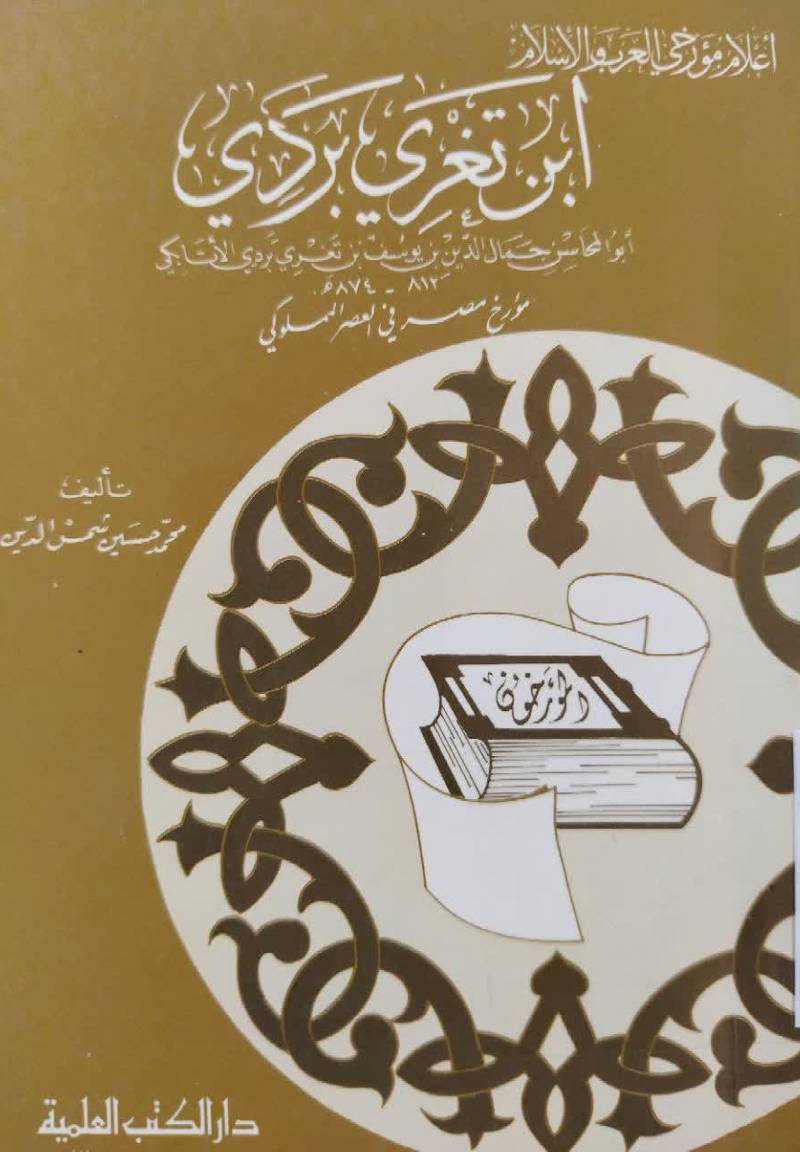 أعلام مؤرخي العرب والإسلام
ابن تغري بردي
أبو المحاسن جمال الدين بن يوسف بن تغري بردي الأتابكي
٨١٣ - ٨٧٤ هـ
مؤرخ مصر في العصر المملوكي
تأليف
محمد حسين شمس الدين
المؤرخون
دار الكتب العلمية